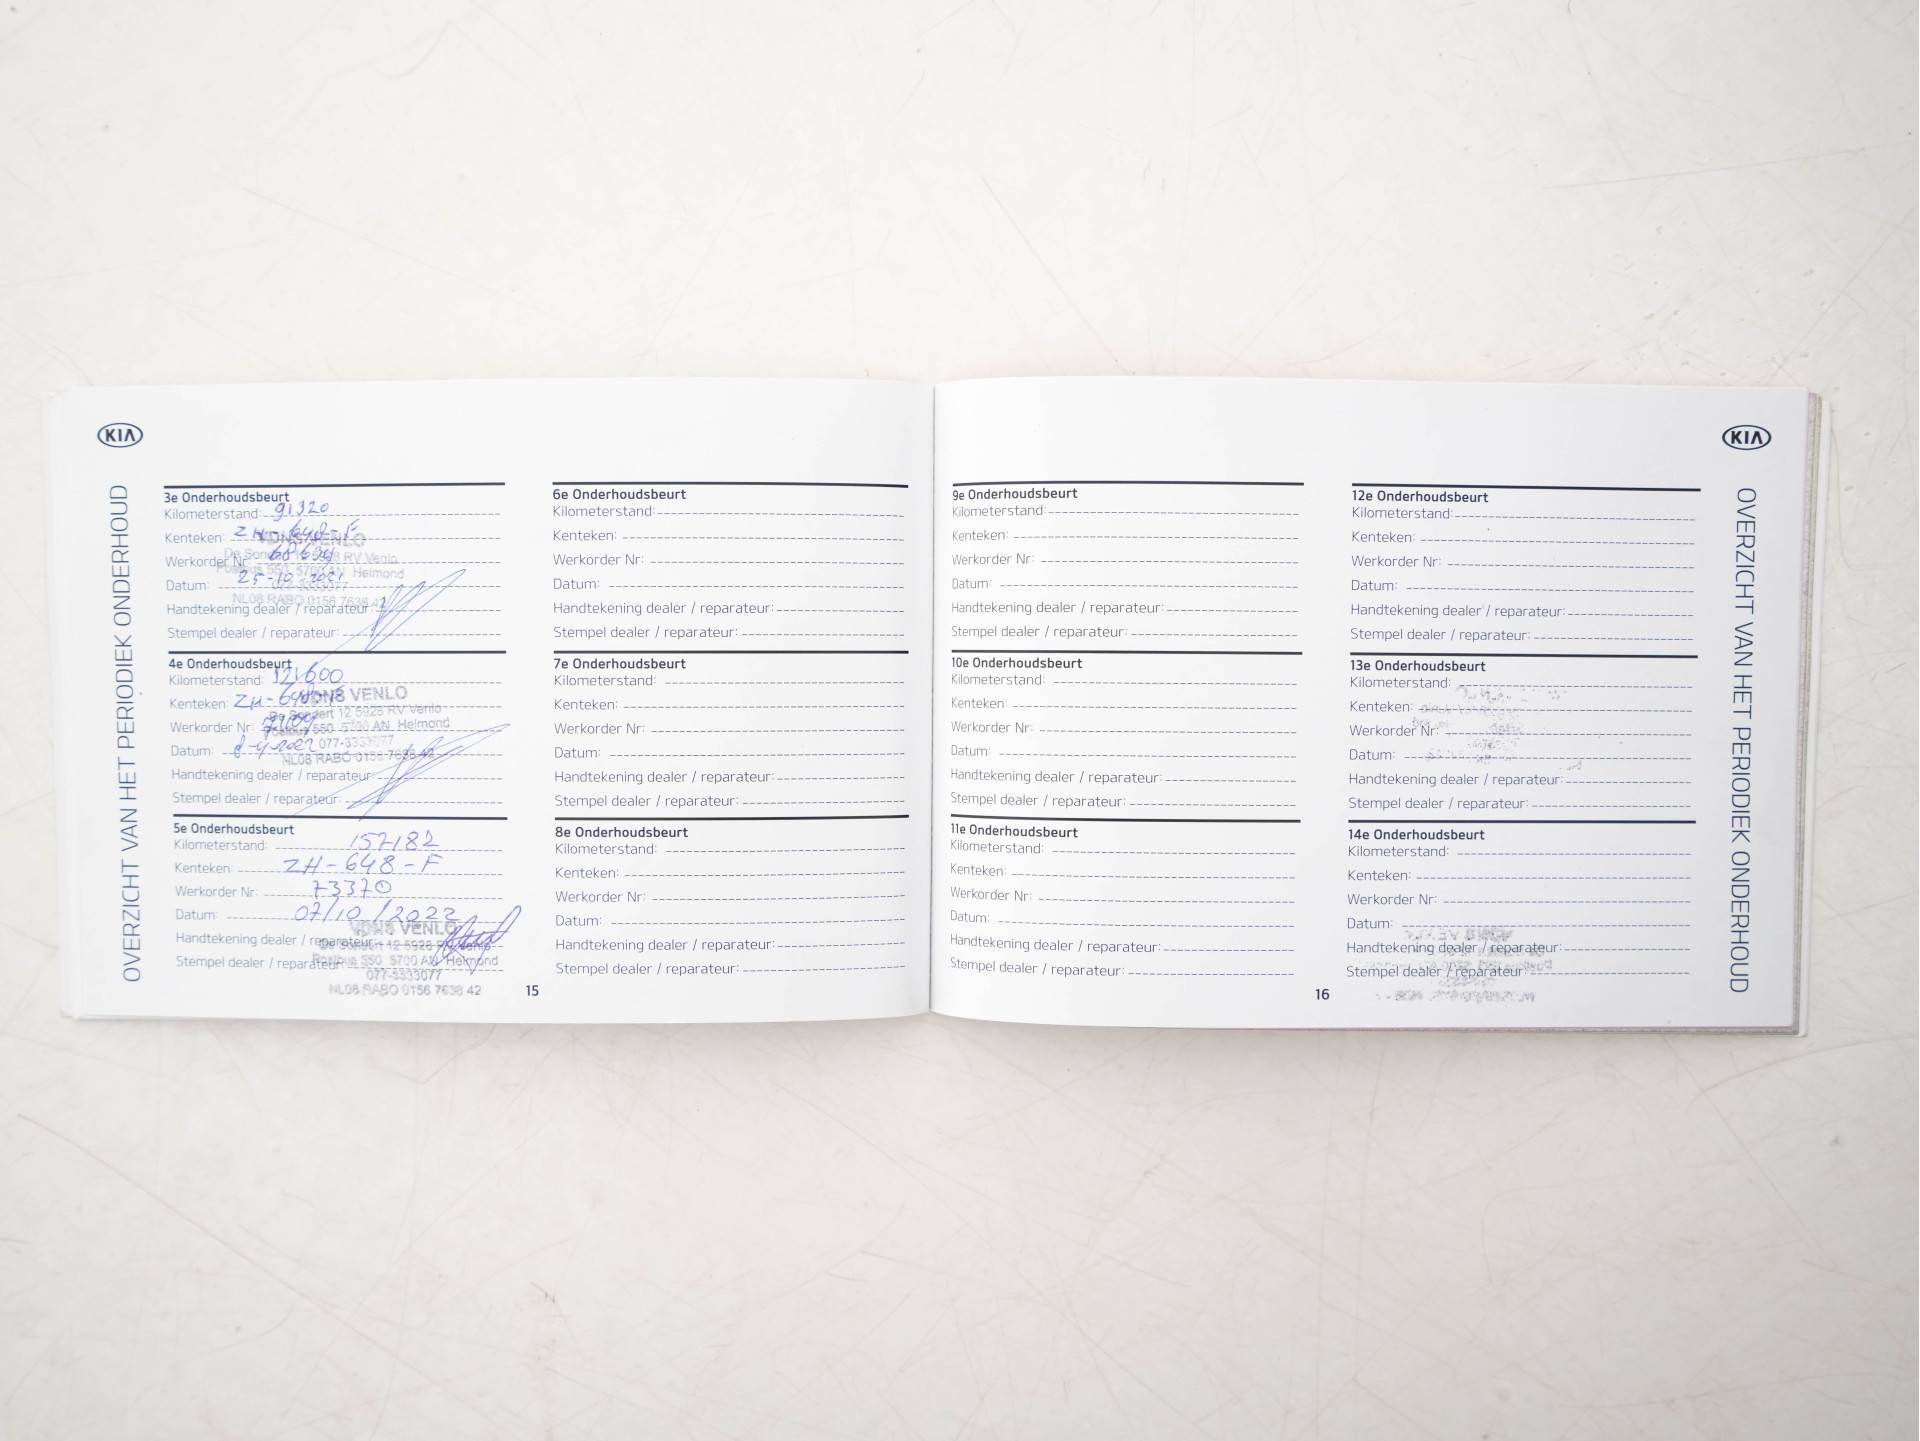 KIA
OVERZICHT VAN HET PERIODIEK ONDERHOUD
3e Onderhoudsbeurt
Kilometerstand: 91320
Kenteken: ZH-648-F
VDNS VENLO
Werkorder Nr:
De Sondert 12 5928 RV Venlo
Postbus 550 5700 AN Helmond
Datum: 25-10-2021
077-3333077
NL08 RABO 0156 7638 42
Handtekening dealer / reparateur:
Stempel dealer / reparateur:
4e Onderhoudsbeurt
Kilometerstand: 121600
Kenteken: ZH-648-F
VDNS VENLO
De Sondert 12 5928 RV Venlo
Werkorder Nr:
Postbus 550 5700 AN Helmond
Datum: 8-4-2022
077-3333077
NL08 RABO 0156 7638 42
Handtekening dealer / reparateur:
Stempel dealer / reparateur:
5e Onderhoudsbeurt
Kilometerstand: 157182
Kenteken: ZH-648-F
Werkorder Nr: 73370
Datum: 07/10/2022
VDNS VENLO
Handtekening dealer / reparateur:
De Sondert 12 5928 RV Venlo
Postbus 550 5700 AN Helmond
Stempel dealer / reparateur:
077-3333077
NL08 RABO 0156 7638 42
6e Onderhoudsbeurt
Kilometerstand:
Kenteken:
Werkorder Nr:
Datum:
Handtekening dealer / reparateur:
Stempel dealer / reparateur:
7e Onderhoudsbeurt
Kilometerstand:
Kenteken:
Werkorder Nr:
Datum:
Handtekening dealer / reparateur:
Stempel dealer / reparateur:
8e Onderhoudsbeurt
Kilometerstand:
Kenteken:
Werkorder Nr:
Datum:
Handtekening dealer / reparateur:
Stempel dealer / reparateur:
15
9e Onderhoudsbeurt
Kilometerstand:
Kenteken:
Werkorder Nr:
Datum:
Handtekening dealer / reparateur:
Stempel dealer / reparateur:
10e Onderhoudsbeurt
Kilometerstand:
Kenteken:
Werkorder Nr:
Datum:
Handtekening dealer / reparateur:
Stempel dealer / reparateur:
11e Onderhoudsbeurt
Kilometerstand:
Kenteken:
Werkorder Nr:
Datum:
Handtekening dealer / reparateur:
Stempel dealer / reparateur:
16
12e Onderhoudsbeurt
Kilometerstand:
Kenteken:
Werkorder Nr:
Datum:
Handtekening dealer / reparateur:
Stempel dealer / reparateur:
13e Onderhoudsbeurt
Kilometerstand:
Kenteken:
Werkorder Nr:
Datum:
Handtekening dealer / reparateur:
Stempel dealer / reparateur:
14e Onderhoudsbeurt
Kilometerstand:
Kenteken:
Werkorder Nr:
Datum:
Handtekening dealer / reparateur:
Stempel dealer / reparateur:
KIA
OVERZICHT VAN HET PERIODIEK ONDERHOUD